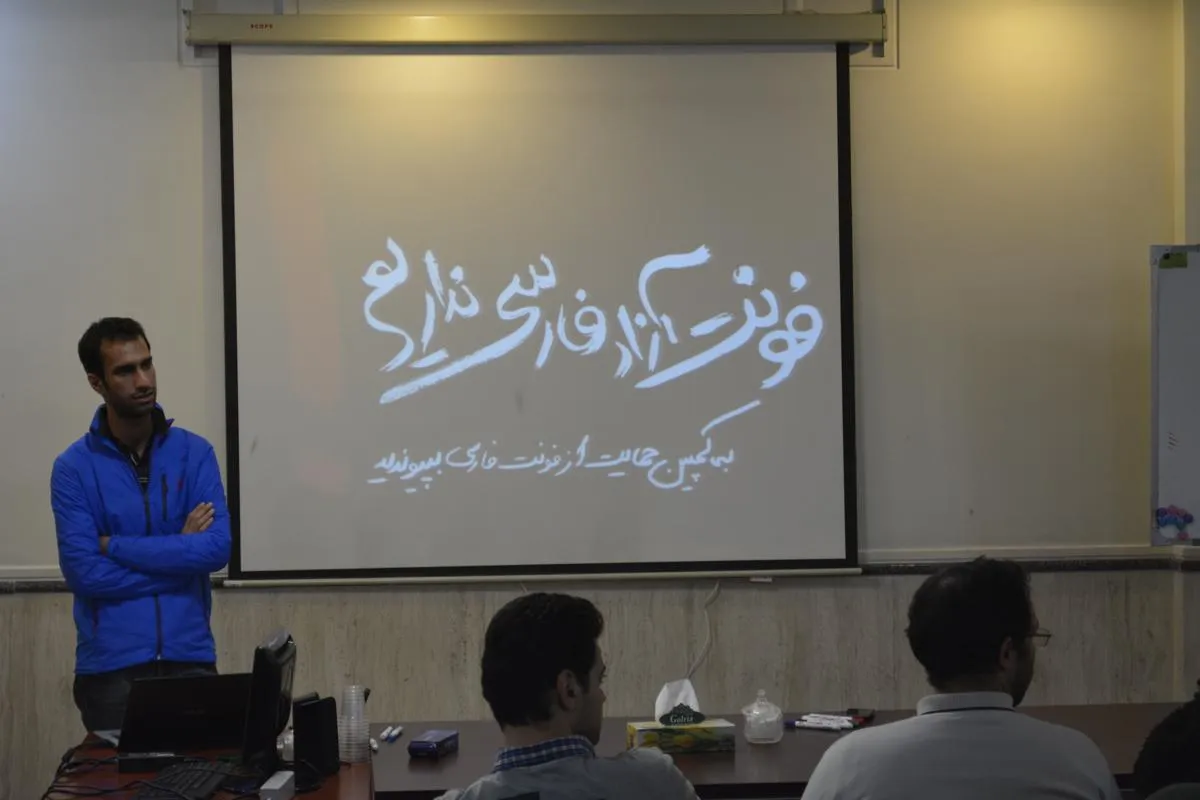 SCOPE
فونت آزاد فارسی نداریم
به کمپین حمایت از فونت فارسی بپیوندید
Golriz